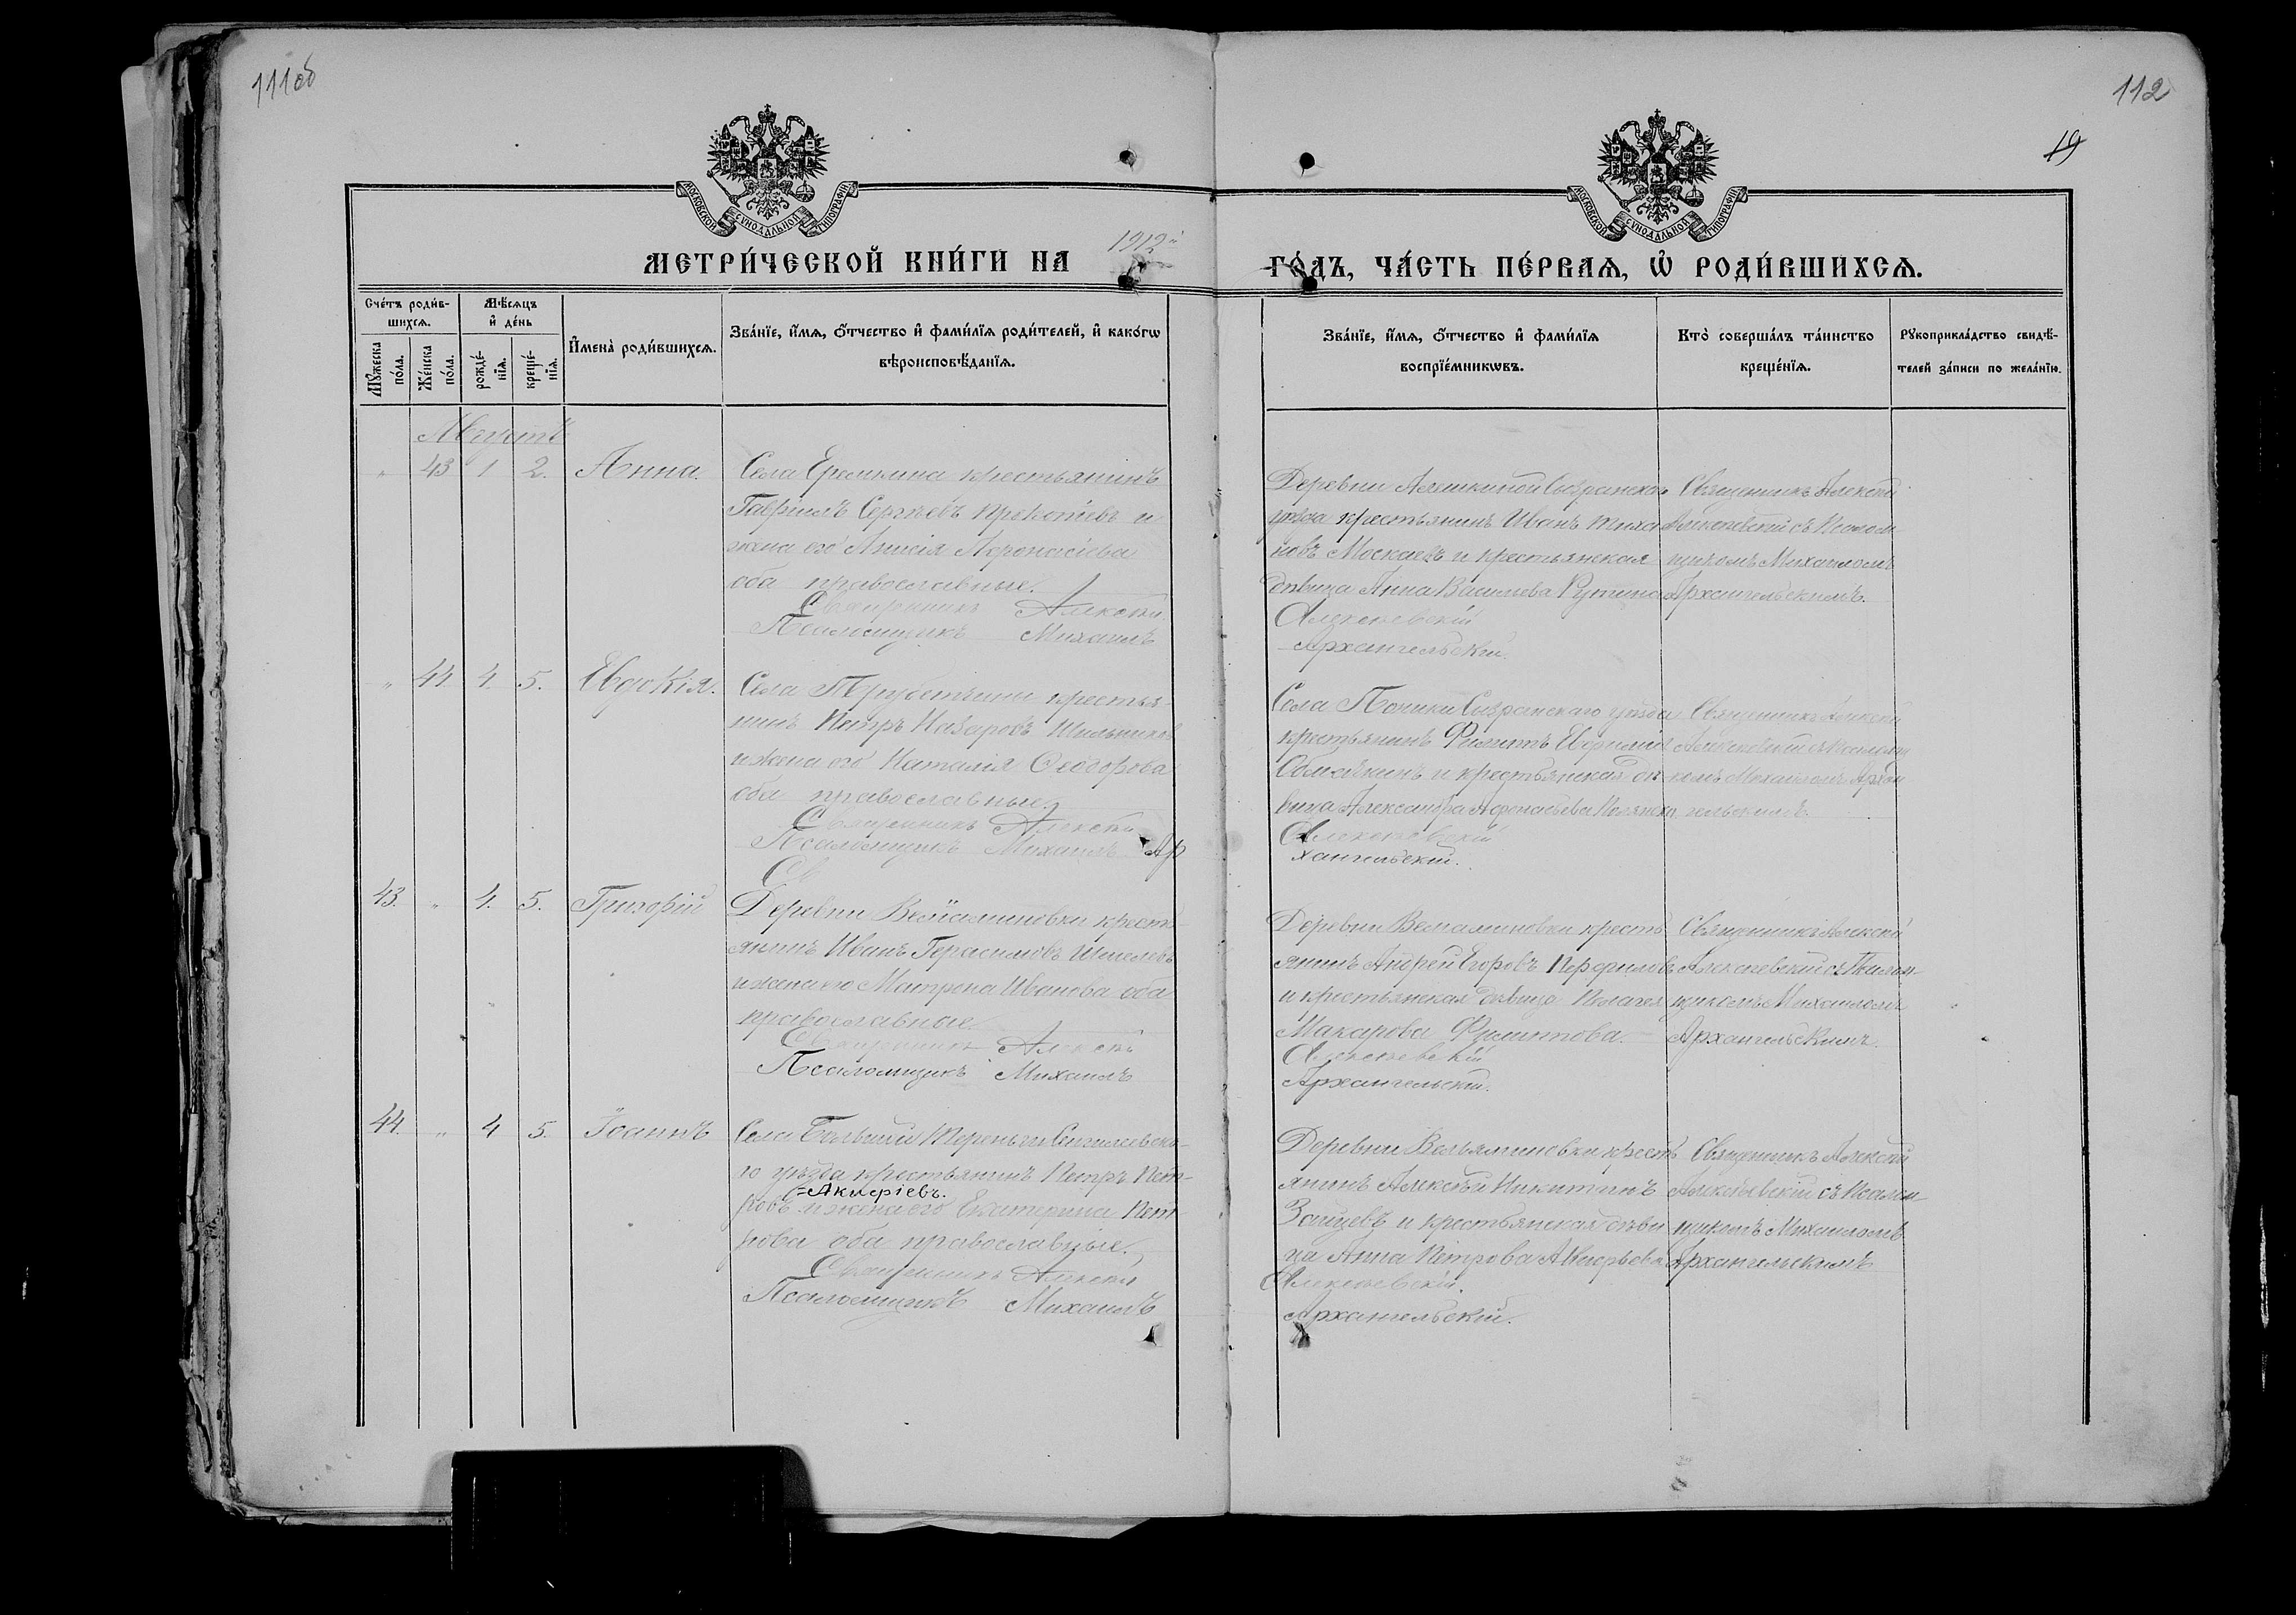 111об
112
19
МОСКОВСКОЙ СУНОДАЛЬНОЙ ТИПОГРАФІИ
МОСКОВСКОЙ СУНОДАЛЬНОЙ ТИПОГРАФІИ
МЕТРИ́ЧЕСКОЙ КНИ́ГИ НА 1912й ГО́ДЪ, ЧА́СТЬ ПЕ́РВАѦ, Ѡ҆ РОДИ́ВШИХСѦ.
Сче́тъ роди́в-
шихсѧ.
Мꙋ́жеска по́ла.
Же́нска по́ла.
Мѣ́сѧцъ
и҆ де́нь
рожде́-нїѧ.
креще́-нїѧ.
И҆мена̀ роди́вшихсѧ.
Зва́нїе, и҆́мѧ, ѻ҆́тчество и҆ фами́лїѧ роди́телей, и҆ како́гѡ
вѣроисповѣ́данїѧ.
Зва́нїе, и҆́мѧ, ѻ҆́тчество и҆ фами́лїѧ
воспрїе́мникѡвъ.
Кто̀ соверша́лъ та́инство
креще́нїѧ.
Рꙋкоприкла́дство свидѣ́-
телей за́писи по жела́нїю.
Августъ
" 43 1 2. Анна.
Села Еремкина крестьянинъ
Гавріилъ Сергѣевъ Прокопіевъ и
жена его Анисія Афонасіева
оба православные.
Священникъ Алексѣй
Псаломщикъ Михаилъ
Деревни Алешкиной Сызранскаго
уѣзда крестьянинъ Иванъ
новъ Москаевъ и крестьянская
дѣвица Анна Васильева
Алексеевскій
Архангельскій.
Священникъ Алексѣй
Алексеевскій съ Псалом
щикомъ Михаиломъ
Архангельскимъ.
" 44 4. 5. Евдокія.
Села крестья
нинъ Петръ Назаровъ
и жена его Наталія Ѳеодорова
оба православные.
Священникъ Алексѣй
Псаломщикъ Михаилъ Ар
Св
Села Сызранскаго уѣзда
крестьянинъ Филиппъ
и крестьянская дѣ
вица Александра Афонасьева
Алексеевскій
хангельскій.
Священникъ Алексѣй
Алексеевскій съ Псаломщи
комъ Михаиломъ Архан
гельскимъ.
43. " 4. 5. Григорій
Деревни Вельяминовки кресть
янинъ Иванъ Герасимовъ Шмелевъ
и жена его Матрона Иванова оба
православные.
Священникъ Алексѣй
Псаломщикъ Михаилъ
Деревни Вельаминовки кресть
янинъ Андрей Егоровъ Перфиловъ
и крестьянская дѣвица Пелагея
Макарова Филиппова.
Алексеевскій
Архангельскій.
Священникъ Алексѣй
Алексеевскій съ Псалом
щикомъ Михаиломъ
Архангельскимъ.
44. " 4 5. Іоаннъ
Села Большой Тереньги Сенгилеевска-
го уѣзда крестьянинъ Петръ Пет-
=Акифіевъ.
ровъ и жена его Екатерина Пет
рова оба православные.
Священникъ Алексѣй
Псаломщикъ Михаилъ
Деревни Вельяминовки кресть
янинъ Алексѣй Никитинъ
Зайцевъ и крестьянская дѣви
ца Анна Петрова
Алексеевскій.
Архангельскій.
Священникъ Алексѣй
Алексѣевскій съ Псалом
щикомъ Михаиломъ
Архангельскимъ